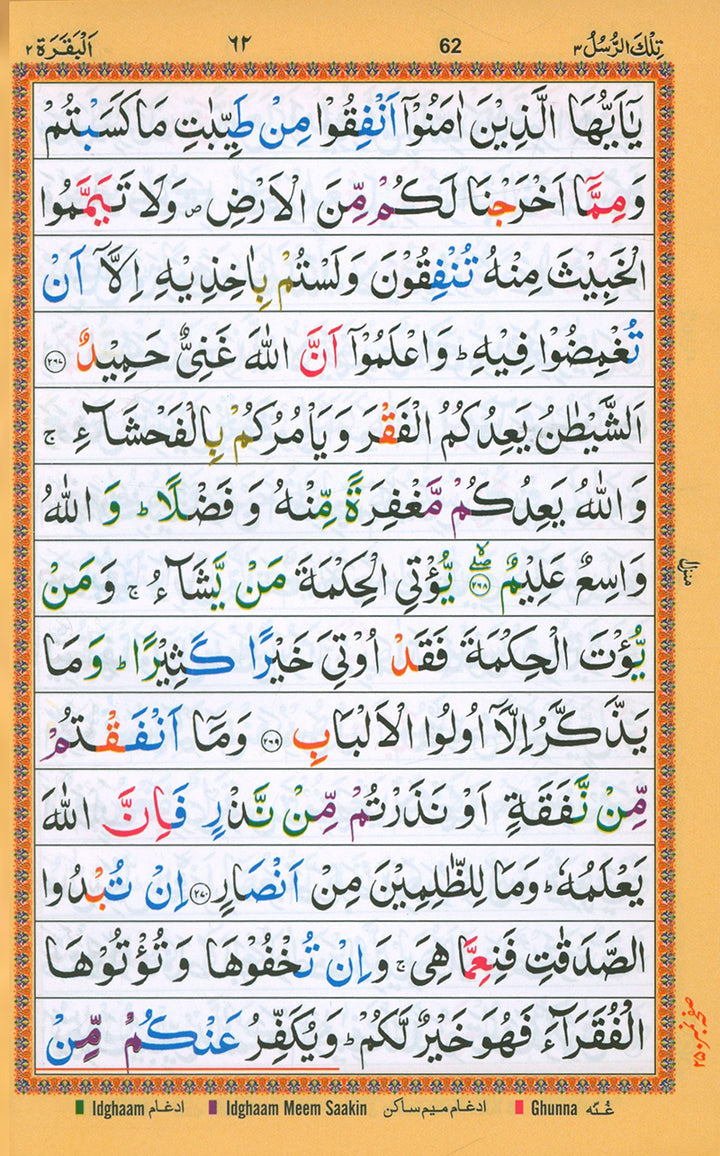 تِلْكَ الرُّسُلُ ٣ 62 ٦٢ اَلْبَقَرَة ٢
يٰۤاَيُّهَا الَّذِيْنَ اٰمَنُوْۤا اَنْفِقُوْا مِنْ طَيِّبٰتِ مَا كَسَبْتُمْ
وَمِمَّاۤ اَخْرَجْنَا لَكُمْ مِّنَ الْاَرْضِ ص وَلَا تَيَمَّمُوا
الْخَبِيْثَ مِنْهُ تُنْفِقُوْنَ وَلَسْتُمْ بِاٰخِذِيْهِ اِلَّاۤ اَنْ
تُغْمِضُوْا فِيْهِ ؕ وَاعْلَمُوْۤا اَنَّ اللّٰهَ غَنِىٌّ حَمِيْدٌ ٢٦٧
اَلشَّيْطٰنُ يَعِدُكُمُ الْفَقْرَ وَيَاْمُرُكُمْ بِالْفَحْشَآءِ ج
وَاللّٰهُ يَعِدُكُمْ مَّغْفِرَةً مِّنْهُ وَفَضْلًا ؕ وَاللّٰهُ
وَاسِعٌ عَلِيْمٌ ٢٦٨ يُّؤْتِى الْحِكْمَةَ مَنْ يَّشَآءُ ج وَمَنْ
يُّؤْتَ الْحِكْمَةَ فَقَدْ اُوْتِىَ خَيْرًا كَثِيْرًا ؕ وَمَا
يَذَّكَّرُ اِلَّاۤ اُولُوا الْاَلْبَابِ ٢٦٩ وَمَاۤ اَنْفَقْتُمْ
مِّنْ نَّفَقَةٍ اَوْ نَذَرْتُمْ مِّنْ نَّذْرٍ فَاِنَّ اللّٰهَ
يَعْلَمُهٗ ؕ وَمَا لِلظّٰلِمِيْنَ مِنْ اَنْصَارٍ ٢٧٠ اِنْ تُبْدُوا
الصَّدَقٰتِ فَنِعِمَّا هِىَ ج وَاِنْ تُخْفُوْهَا وَتُؤْتُوْهَا
الْفُقَرَآءَ فَهُوَ خَيْرٌ لَّكُمْ ؕ وَيُكَفِّرُ عَنْكُمْ مِّنْ
منزل
صفحہ نمبر ٢٥٠
Idghaam ادغام Idghaam Meem Saakin ادغام میم ساکن Ghunna غُنّه